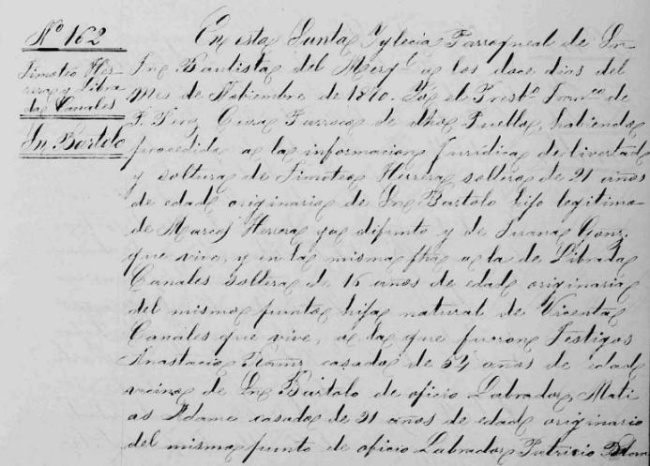 Nº 162
Timoteo Her-
rera y Libra
da Canales
Sn. Bartolo
En esta Santa Yglecia Parroqueal de Sn.
Jn. Bautista del Mezqt. a los doce dias del
mes de Nobiembre de 1890. Yo el Presbo. Franco. de
P. Perez Cura Parroco de dho Pueblo, habiendo
procedido a la informacion Jurídica de livertad
y soltura de Timoteo Herrera soltero de 21 años
de edad originario de Sn. Bartolo hijo legitimo
de Marcos Herrera ya difunto y de Juana Gonz.
que vive, y en la misma fha a la de Librada
Canales soltera de 16 años de edad originaria
del mismo punto hija natural de Vicenta
Canales que vive, a la que fueron Testigos
Anastacio casado de 54 años de edad
vecino de Sn. Bartolo de oficio Labrador, Mati
as Adame casado de 21 años de edad originario
del mismo punto de oficio Labrador Patricio